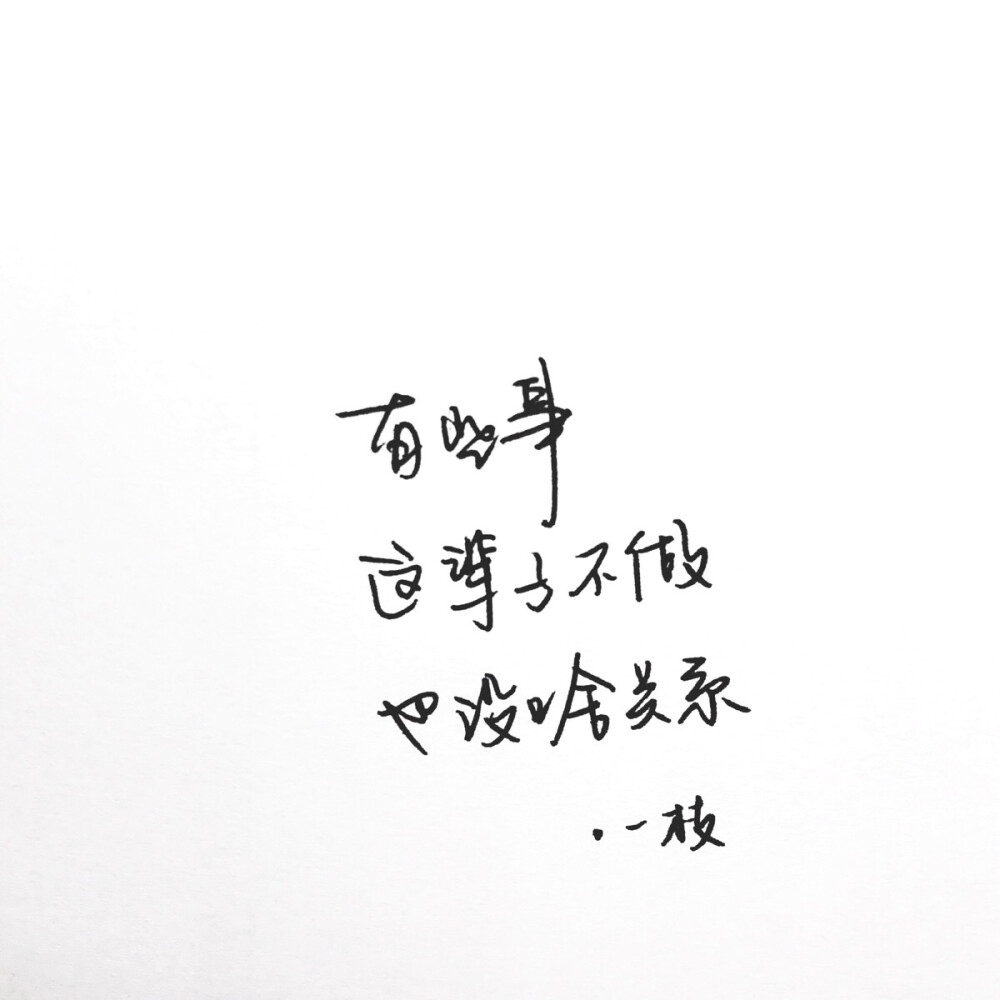 有些事
这辈子不做
也没啥关系
.一枝